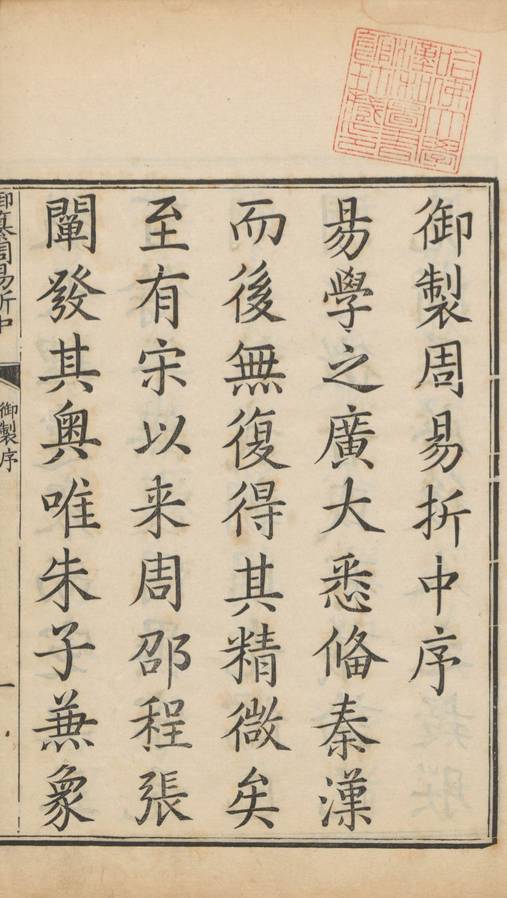 御製周易折中序
易學之廣大悉備秦漢
而後無復得其精微矣
至有宋以来周邵程張
闡發其奥唯朱子蒹象
御纂周易折中
御製序
一
哈佛大學
漢和圖書
館珍藏印